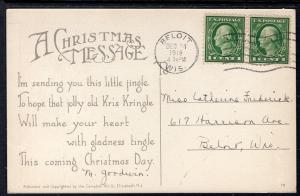 A CHRISTMAS
MESSAGE
I'm sending you this little jingle
To hope that jolly old Kris Kringle
Will make your heart
with gladness tingle
This coming Christmas Day.
M. Goodwin.
Published and Copyrighted by the Campbell Art Co. Elizabeth, N.J.
BELOIT
DEC
1919
4 PM
WIS.
U.S. POSTAGE
1 CENT 1
U.S. POSTAGE
1 CENT 1
Miss Catherine Frederick
617 Harrison Ave
Beloit, Wis.